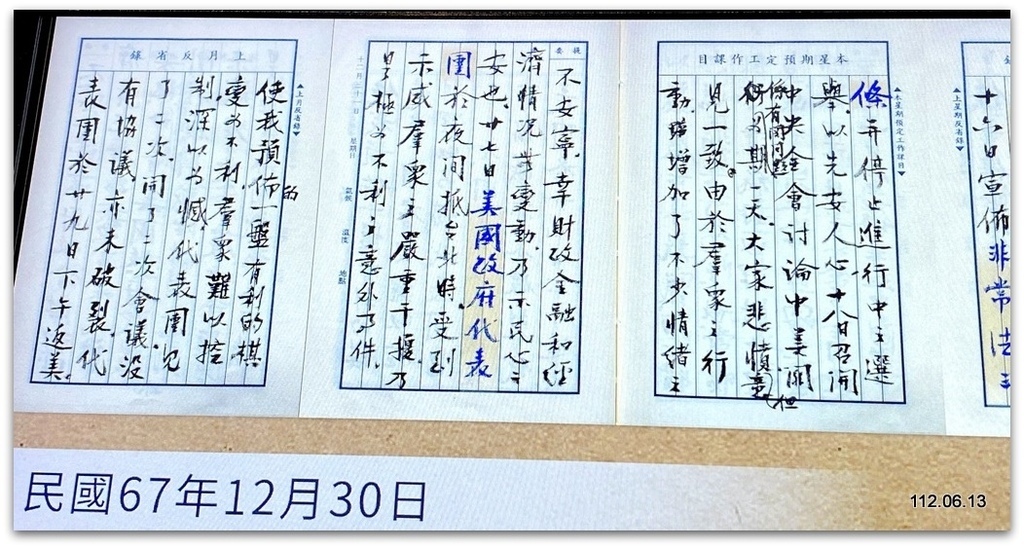 ▲上星期反省錄▼
十六日宣佈非常法
本星期預定工作課目
條并停止進行中之選
舉,以先安人心.十八日召開
中央全會討論中美關
係有關問題
為期一天.大家悲憤,但意
見一致。由於羣眾之行
動,增加了不少情緒之
提要
不安寧.幸財政金融和經
濟情況無變動,乃示民心之
安也.廿七日美國政府代表
團於夜間抵台北時,受到
示威羣眾之嚴重干擾乃
是極為不利之意外事件.
十二月三十一日 星期日 氣候 溫度 地點
上月反省錄
▲上月反省錄▼
使我預佈的一盤有利的棋
變為不利,羣眾難以控
制深以為憾,代表團見
了二次,開了二次會議,沒
有協議,亦未破裂.代
表團於廿九日下午返美.
民國67年12月30日
112.06.13